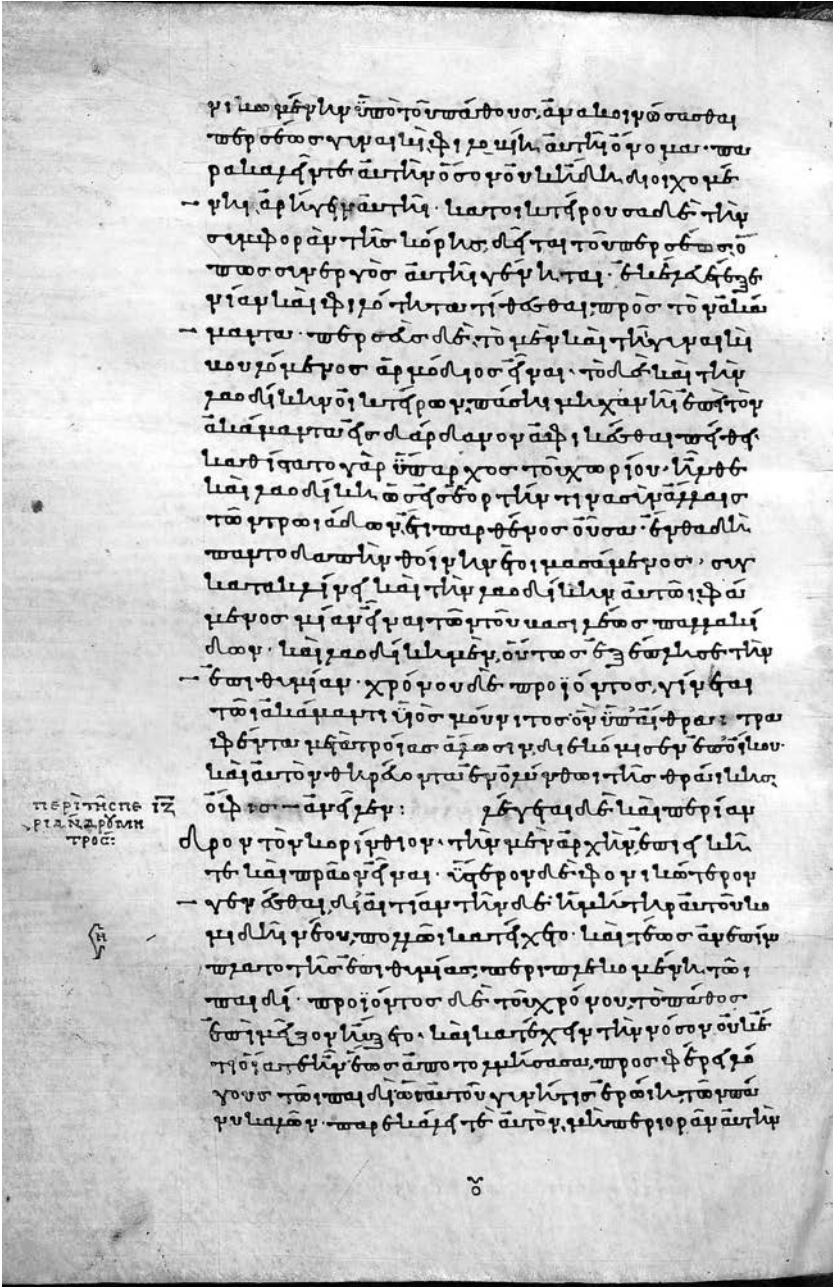 νικωμένην ὑπὸ τοῦ πάθους, ἀνακοινώσασθαι
περσέως γυναικὶ, φιλοβίη αὐτῆι ὄνομα· πα
ρακαλεῖν τε αὐτὴν ὅσον οὐκ ἤδη διοιχομέ
νηι, ἀρήγειν αὐτῆι· κατοικτείρουσα δὲ τὴν
συμφορὰν τῆς κόρης, δεῖται τοῦ περσέως, ὅ
πως συνεργὸς αὐτῆι γένηται· ἐκέλευέ τε ξε
νίαν καὶ φιλότητα τίθεσθαι, πρὸς τὸν ἀκά
μαντα· περσεὺς δὲ, τὸ μὲν καὶ τῆι γυναικὶ
βουλόμενος ἁρμόδιος εἶναι· τὸ δὲ καὶ τὴν
λαοδίκην οἰκτείρων, πάσηι μηχανῆι ἐπεὶ τὸν
ἀκάμαντα εἰς δάρδανον ἀφικέσθαι πείθει·
καθίστατο γὰρ ὕπαρχος τοῦ χωρίου· ἦλθε
καὶ λαοδίκη, ὡς εἰς ἑορτήν τινα σὺν ἄλλαις
τῶν τρωιάδων, ἔτι παρθένος οὖσα· ἔνθα δὴ
παντοδαπὴν θοίνην ἑτοιμασάμενος, συγ
κατακλίνει καὶ τὴν λαοδίκην αὐτῶι, φά
μενος μίαν εἶναι τῶν τοῦ βασιλέως παλλακί
δων· καὶ λαοδίκη μὲν, οὕτως ἐξέπλησε τὴν
ἐπιθυμίαν· χρόνου δὲ προϊόντος, γίνεται
τῶι ἀκάμαντι υἱὸς μούνιτος· ὃν ὑπ' αἴθραι τρα
φέντα μετὰ τροίας ἅλωσιν, διεκόμισεν ἐπ' οἴκου·
καὶ αὐτὸν θηρεύοντα ἐν ὀλύνθωι τῆς θράικης,
περὶ τῆς πε ιζ ὄφις ἀνεῖλεν: λέγεται δὲ καὶ περίαν
ριάνδρου μη
τρος:
δρον τὸν κορίνθιον· τὴν μὲν ἀρχὴν, ἐπιεικῆ
τε καὶ πρᾶον εἶναι· ὕστερον δὲ φονικώτερον
γενέσθαι, δι' αἰτίαν τήνδε· ἡ μήτηρ αὐτοῦ κο
μιδῆι νέου, πολλῶι κατείχετο· καὶ τέως ἀνεπίμ
πλατο τῆς ἐπιθυμίας, περιπλεκομένη τῶι
παιδί· προϊόντος δὲ τοῦ χρόνου, τὸ πάθος
ἐπὶ μεῖζον ηὔξετο· καὶ κατέχειν τὴν νόσον οὐκ έ
τι οἵα τε ἦν· ἕως ἀποτολμήσασα, προσφέρει λό
γους τῶι παιδὶ ὡς αὐτοῦ γυνή τις ἐρώιη, τῶν πά
νυ καλῶν· παρεκάλει τε αὐτὸν, μὴ περιορᾶν αὐτὴν